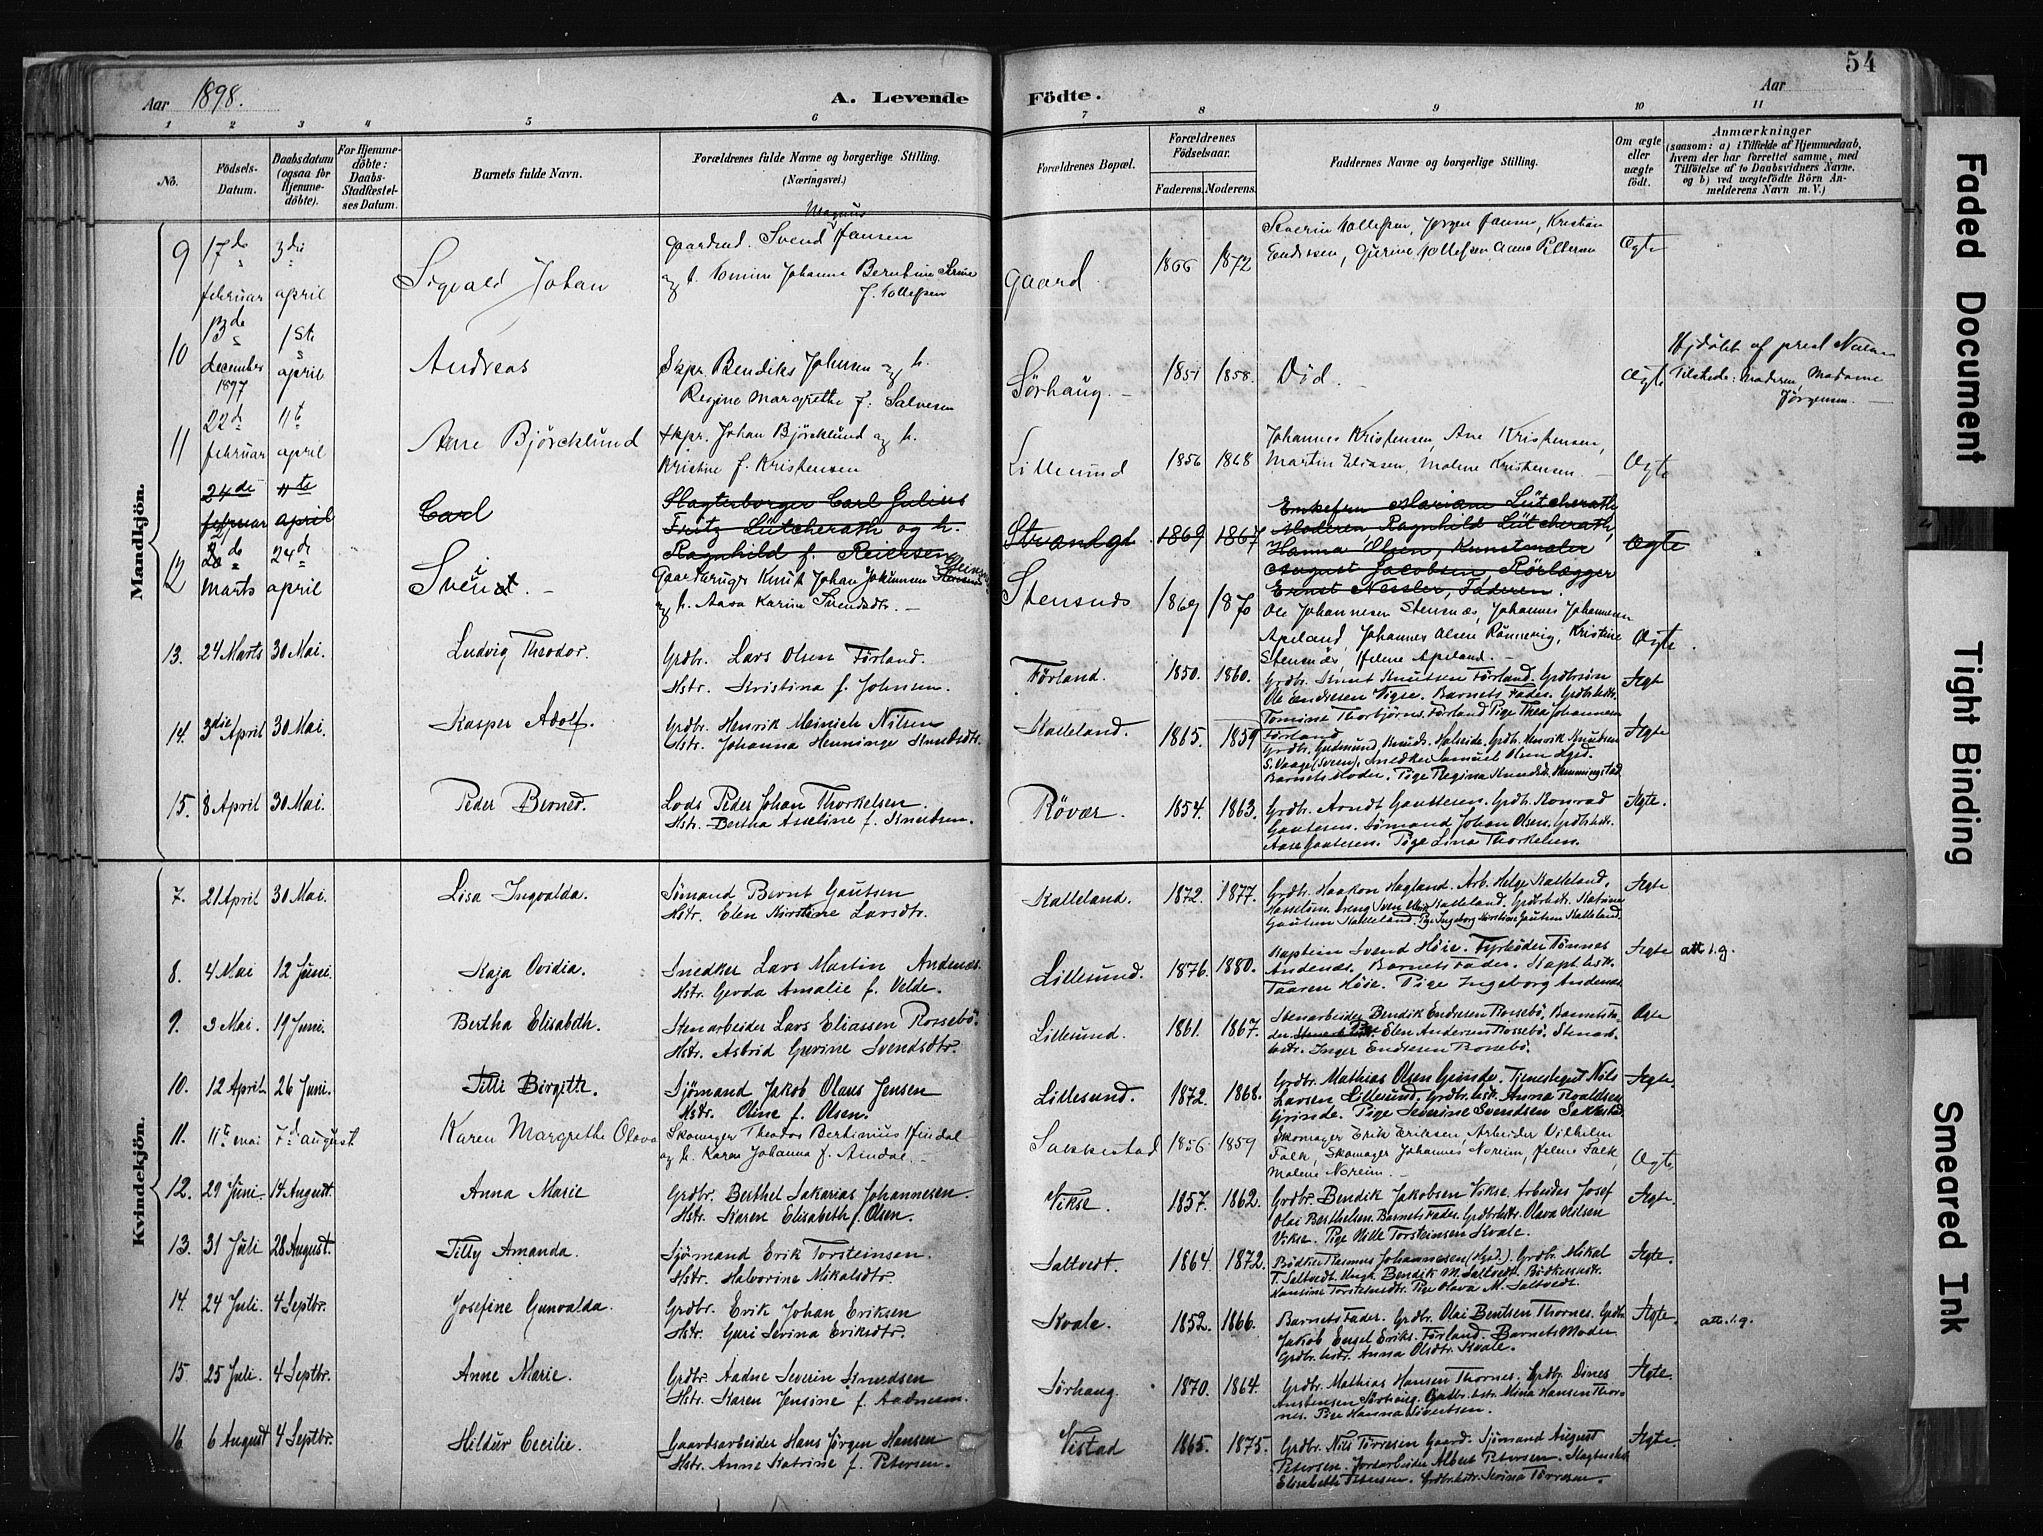 54
Aar 1898.
A. Levende Födte.
Aar
1 2 3 4 5 6 7 8 9 10 11
No.
Födsels-Datum.
Daabsdatum (ogsaa for Hjemme-döbte).
For Hjemme-döbte: Daabs-Stadfæstel-ses Datum.
Barnets fulde Navn.
Forældrenes fulde Navne og borgerlige Stilling.
(Næringsvei.)
Forældrenes Bopæl.
Forældrenes Födselsaar.
Faderens. Moderens.
Faddernes Navne og borgerlige Stilling.
Om ægte eller uægte födt.
Anmærkninger
(saasom: a) i Tilfælde af Hjemmedaab, hvem der har forrettet samme, med Tilföielse af to Daabsvidners Navne, og b) ved uægtefödte Börn An-melderens Navn m. V.)
Mandkjön.
9 17de februar 3die april Sigvald Johan
Magnus
Gaardmd. Svend Hansen
og h. Tomine Johanne Berntine Serine
f. Tollefsen
Gaard 1866 1872
Severin Tollefsen, Jørgen Hansen, Kristian
Endresen, Gurine Tollefsen, Anna Pettersen
Ægte
10 13de december 1897 1ste april Andreas
Skpr. Bendiks Johnsen og h.
Regine Margrethe f. Salvesen
Sørhaug. 1851 1858. Død.
Ægte
Hjdøbt af prest
Tilstede: Moderen, Madame
Jørgensen.
11 22de februar 11te april Arne Bjørcklund
Skpr. Johan Bjørcklund og h.
Kristine f. Kristensen
Lillesund 1856 1868
Johannes Kristensen, Ane Kristensen,
Martin Eliasen, Malene Kristensen.
Ægte
24de februar 11te april Carl
Slagterborger Carl Julius
Fritz Lütcherath og h.
Ragnhild f. Reiersen
Strandgt 1869 1867
Enkefru Mariane Lütcherath,
Moderen Ragnhild Lütcherath,
Hanna Olsen, Kunstmaler
August Jacobsen, Rörlægger
Ernst Nessler, Faderen.
Ægte
12 2de Marts 24de april Svein
Gaardbruger Knut Johan Johannesen Stensnæs
og h. Aasa Karine Svendsdtr.
Stensnæs 1869 1870
Ole Johannesen Stensnæs, Johannes Johannesen
Apeland, Johannes Olsen Rønnevig, Kristine
Stensnæs, Helene Apeland.
Ægte
13. 24 Marts 30 Mai. Ludvig Theodor.
Grdbr. Lars Olsen Førland.
Hstr. Kristina f. Johnsen.
Førland. 1850. 1860.
Grdbr. Knut Knutsen Førland. Grdbrsøn
Ole Endresen Vigse. Barnets Fader. Grdbrhstr.
Tomine Thorbjørns. Førland Pige Thea Johannesen
Førland
Ægte
14. 3die April 30 Mai. Kasper Adolf.
Grdbr. Henrik Meinich Nilsen
Hstr. Johanna Henninge Knudsdtr.
Kalleland. 1865. 1859
Grdbr. Gudmund Knuds. Halseide. Grdb. Henrik Knudsen
S. Vaage (Sveen), Snedker Samuel Olsen Hgsd.
Barnets Moder. Pige Regina Knudsd. Hemmingstad
Ægte
15. 8 April 30 Mai. Peder Berned.
Lods Peder Johan Thorkelsen.
Hstr. Bertha Asseline f. Knudsen.
Røvær. 1854. 1863.
Grdbr. Arndt Gautesen. Grdb. Konrad
Gautesen. Sømand Johan Olsen. Grdbhstr.
Aase Gautesen. Pige Lina Thorkelsen.
Ægte.
Kvindekjön.
7. 21 April 30 Mai. Lisa Ingvalda.
Sømand Bernt Gautsen
Hstr. Elen Kirstine Larsdtr.
Kalleland. 1872. 1877.
Grdbr. Haakon Hagland. Arb. Helge Kalleland,
Kalleland. Grdbrhstr. Katrine
Gautsen Kalleland. Pige Ingeborg Kirstine Gautsen Kalleland.
Ægte
8. 4 Mai 12 Juni. Kaja Ovidia.
Snedker Lars Martin Andenæs.
Hstr. Gerda Amalie f. Velde.
Lillesund. 1876. 1880.
Kaptein Svend Høie. Fyrbøder Tønnes
Andenæs. Barnets Fader. Kapt. hstr.
Taaren Høie. Pige Ingeborg Andenæs
Ægte att. 1. g.
9. 3 Mai. 19 Juni. Bertha Elisabeth.
Stenarbeider Lars Eliassen Rossebø.
Hstr. Astrid Gurine Svendsdtr.
Lillesund. 1861. 1867.
Stenarbeider Bendik Endresen Rossebø, Barnets Fa-
der. Pige Elen Andersen Rossebø. Stenarb.
hstr. Inger Endresen Rosebø.
Ægte
10. 12 April. 26 Juni. Tilli Birgith.
Sjømand Jakob Olaus Jensen
Hstr. Oline f. Olsen.
Lillesund. 1872. 1868.
Grdbr. Mathias Olsen Grinde. Tjenestegut Nils
Larsen Lillesund. Grdbr. hstr. Anna Roaldsen
Grinde. Pige Severine Svendsen Sakkestad
Ægte.
11. 11te mai 7de august Karen Margrethe Olava
Skomager Theodor Bertinius Hindal
og h. Karen Johanna f. Aindal.
Sakkestad 1856 1859
Skomager Erik Eriksen, Arbeider Vilhelm
Falk, Skomager Johannes Noreim, Helene Falk,
Malene Noreim.
Ægte
12. 29 Juni. 14 August. Anna Marie
Grdbr. Berthel Sakarias Johannesen.
Hstr. Karen Elisabeth f. Olsen.
Vikse. 1857. 1862.
Grdbr. Bendik Jakobsen Vikse. Arbeider Josef
Olai Berthelsen. Barnets Fader. Grdbrhstr. Olava Nilsen
Vikse. Pige Nille Torsteinsen Kvale.
Ægte.
13. 31 Juli 28 August. Tilly Amanda.
Sjømand Erik Torsteinsen.
Hstr. Halvorine Mikalsdtr.
Saltvedt. 1864. 1872.
Bødker Rasmus Johannesen (Hgsd.). Grdbr. Mikal
T. Saltvedt. Ungk. Bendik M. Saltvedt. Bødkerhstr.
Kansine Torsteinsdtr. Pige Olava M. Saltvedt.
Ægte.
14. 24 Juli. 4 Septbr. Josefine Gunvalda.
Grdbr. Erik Johan Eriksen
Hstr. Guri Serina Eriksdtr.
Kvale. 1852. 1866.
Barnets Fader. Grdbr. Olai Bentsen Thornes. Grdbr.
Jakob Engel Eriks. Førland. Barnets Moder
Grdbr. hstr. Anna Olsdtr. Kvale.
Ægte. att. 1. g.
15. 25 Juli. 4 Septbr. Anne Marie.
Grdbr. Aadne Severin Knudsen
Hstr. Karen Jensine f. Aadnesen.
Sørhaug. 1870. 1864.
Grdbr. Mathias Hansen Thornes. Grdbr. Dines
Anstensen Sørhaug. Grdbr. hstr. Mina Hansen Thor-
nes. Pige Hanna Sivertsen.
Ægte.
16. 6 August 4 Septbr. Hildur Cecilie.
Gaardsarbeider Hans Jørgen Hansen
Hstr. Anne Katrine f. Petersen.
Vestad 1865. 1875.
Grdbr. Nils Torresen Gaard. Sjømand August
Petersen. Jordarbeider Albert Petersen. Slagterhstr.
Elisabeth Petersen. Grdbrhstr. Serina Torresen.
Ægte.
Faded Document
Tight Binding
Smeared Ink